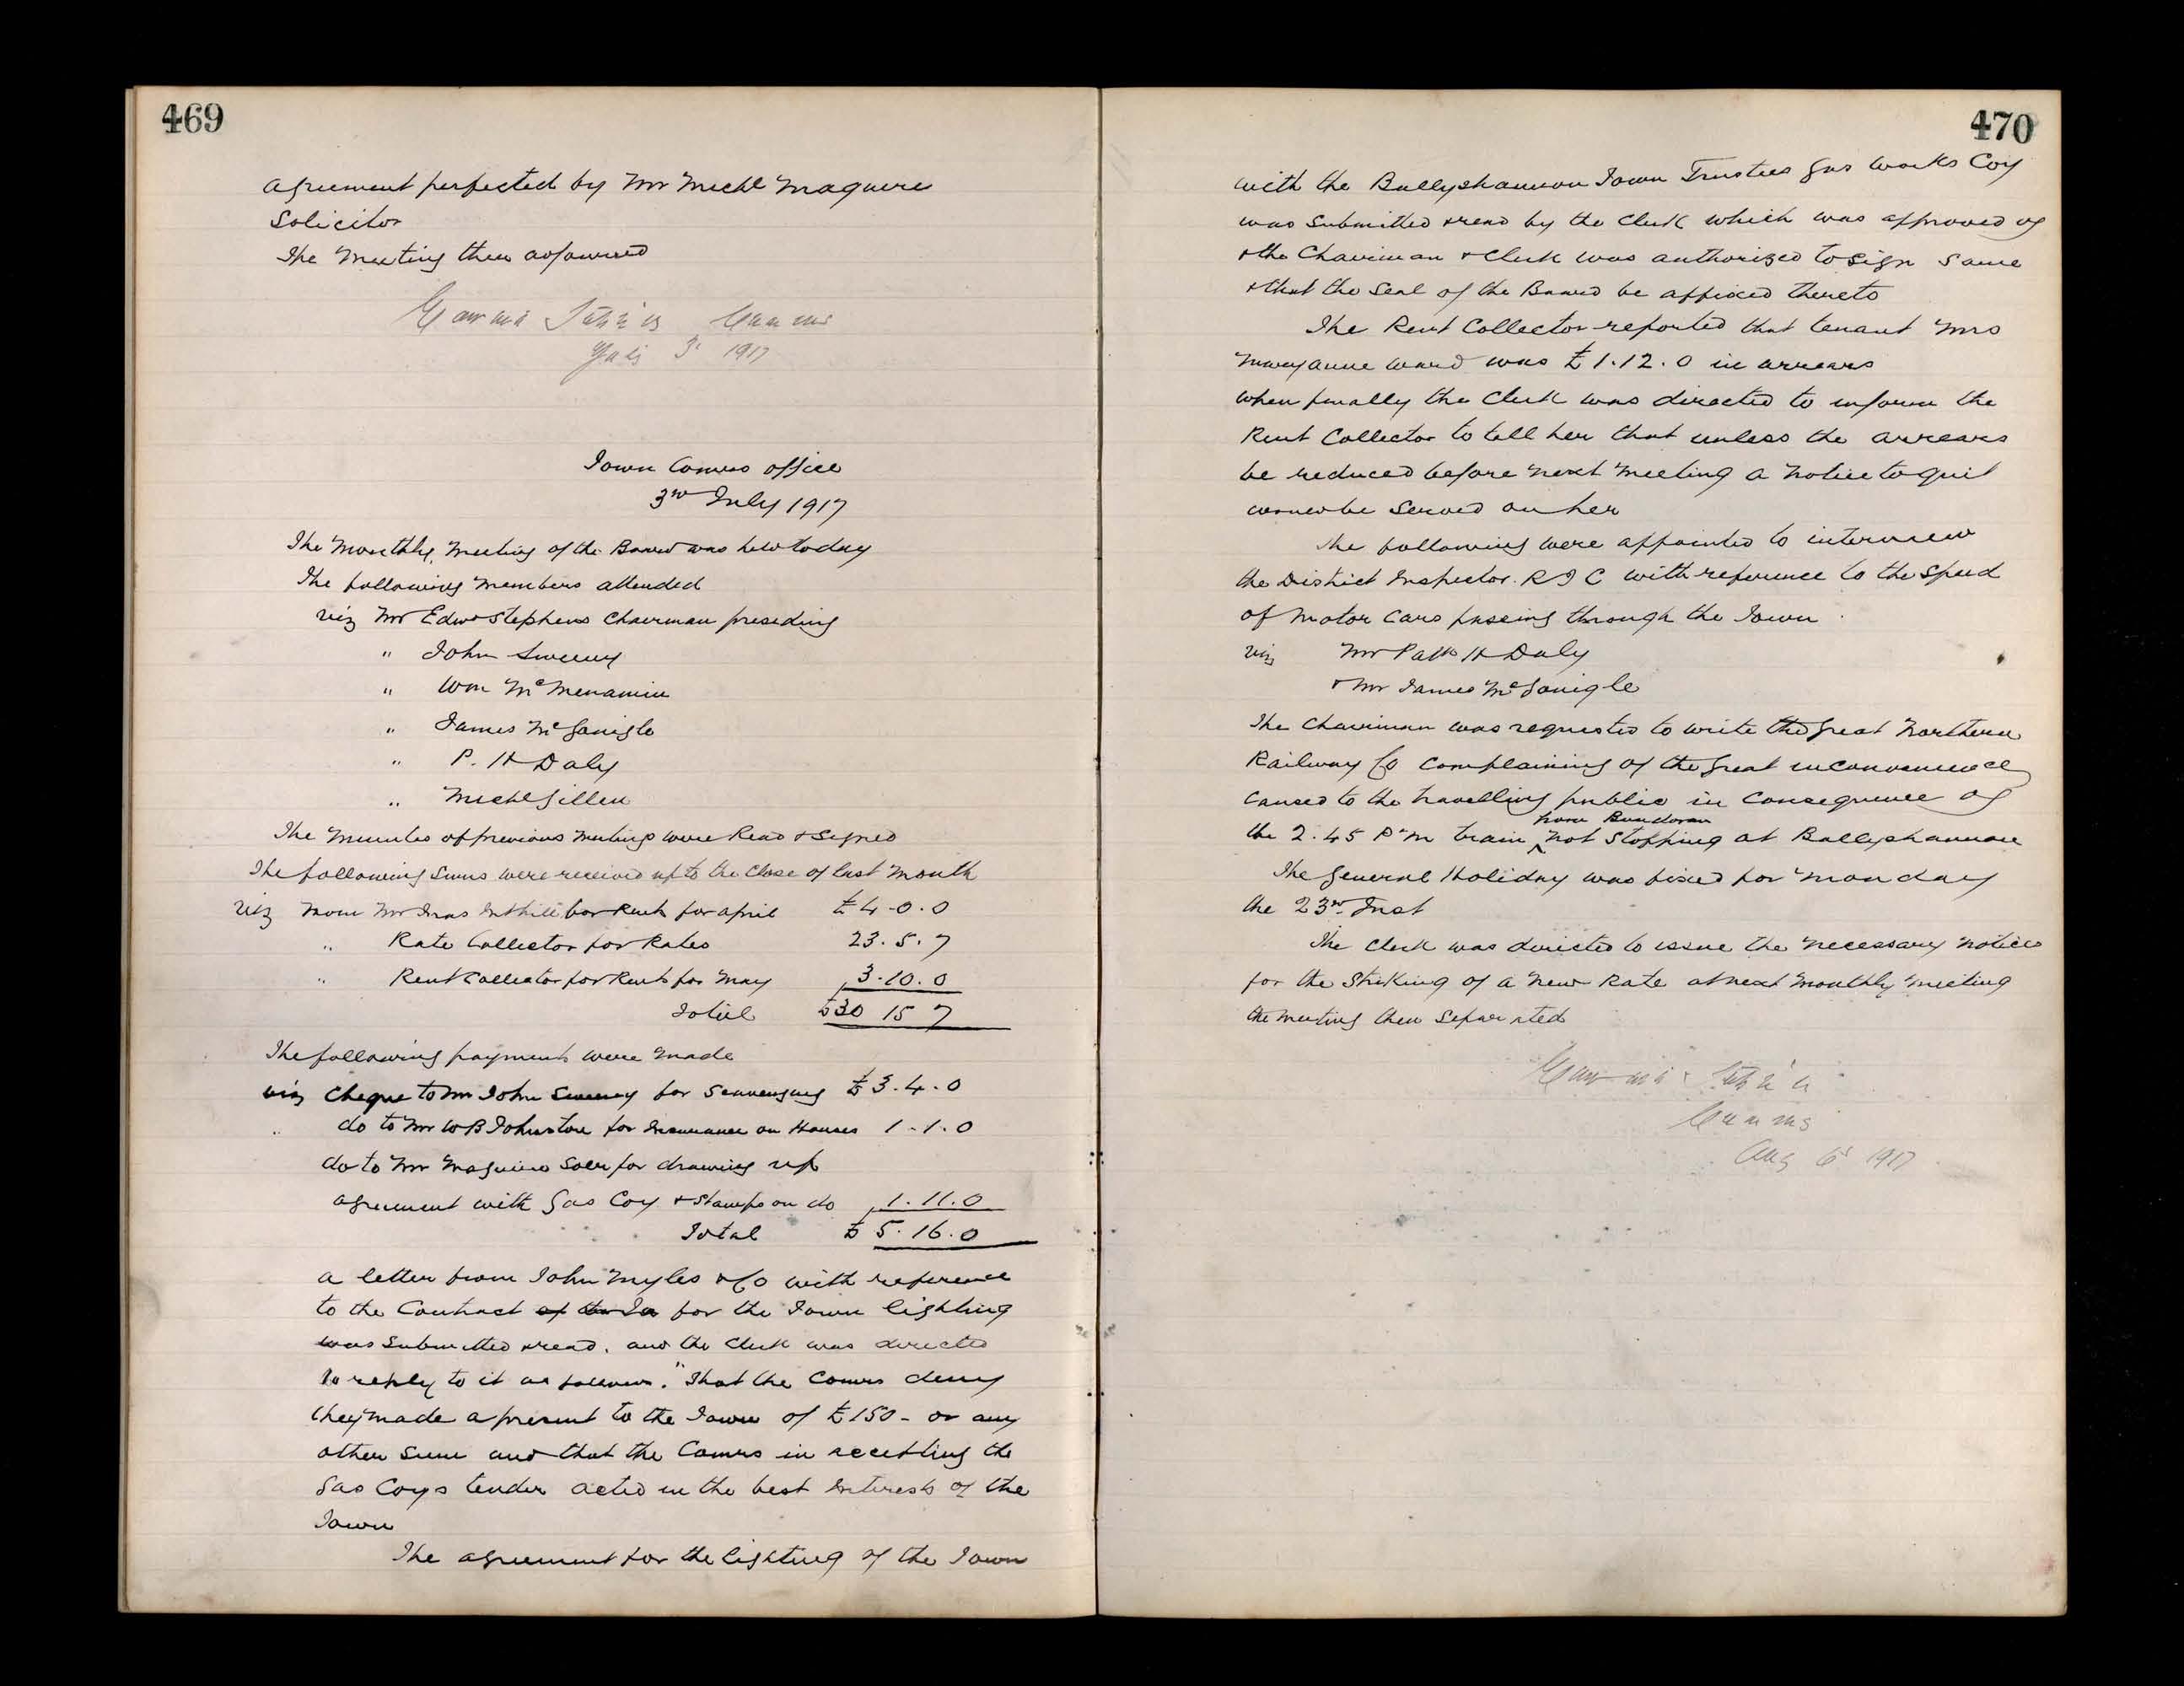 469
agreement perfected by Mr Michl Maguire
Solicitor
The Meeting then adjourned
July 3 1917
Town Comrs office
3rd July 1917
The Monthly Meeting of the Board was held today
The following Members attended
viz Mr Edwd Stephens Chairman presiding
" John Sweeny
" Wm McMenamin
" James McGonigle
" P. H Daly
" Michl Gillen
The Minutes of previous Meetings were Read & Signed
The following Sums were received up to the Close of last Month
viz from Mr for Rent for april £4-0.0
" Rate Collector for Rates 23.5.7
" Rent Collector for Rents for May 3.10.0
Total £30 15 7
The following payments were made
viz Cheque to Mr John Sweeney for Scavenging £3.4.0
" do to Mr W B Johnston for Insurance on Houses 1-1.0
do to Mr Maguire Solr for drawing up
agreement with Gas Coy & Stamps on do 1.11.0
Total £5.16.0
a letter from John Myles & Co with reference
to the Contract of the To for the Town lighting
was Submitted & read. and the Clerk was directed
to reply to it as follows. "That the Comrs deny
they made a present to the Town of £150- or any
other Sum and that the Comrs in accepting the
Gas Coys tender acted in the best Interests of the
Town
The agreement for the lighting of the Town
470
with the Ballyshannon Town Trustees Gas Works Coy
was Submitted & read by the Clerk which was approved of
& the Chairman & Clerk was authorized to Sign Same
& that the Seal of the Board be affixed thereto
The Rent Collector reported that tenant Mrs
Maryanne Ward was £1.12.0 in arrears
when finally the Clerk was directed to inform the
Rent Collector to tell her that unless the arrears
be reduced before next Meeting a Notice to quit
would be Served on her
The following were appointed to interview
the District Inspector R I C with reference to the Speed
of Motor Cars passing through the Town
viz Mr Patk H Daly
& Mr James McGonigle
The Chairman was requested to write the Great Northern
Railway Co Complaining of the Great inconvenience
Caused to the travelling public in Consequence of
from Bundoran
the 2.45 P.M train not Stopping at Ballyshannon
The General Holiday was fixed for Monday
the 23rd Inst
The Clerk was directed to issue the Necessary Notices
for the Striking of a New Rate at next Monthly Meeting
the Meeting then Separated
Aug 6 1917